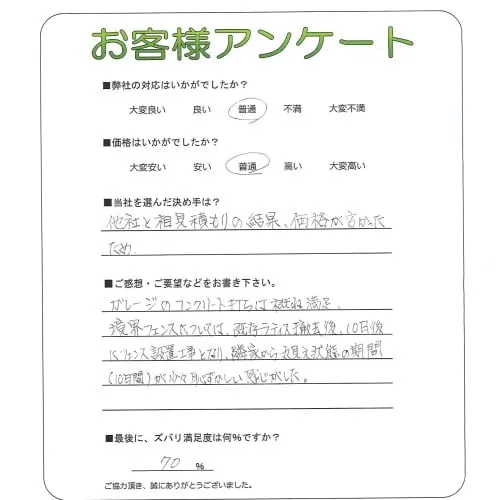 お客様アンケート
■弊社の対応はいかがでしたか？
大変良い 良い 普通 不満 大変不満
■価格はいかがでしたか？
大変安い 安い 普通 高い 大変高い
■当社を選んだ決め手は？
他社と相見積もりの結果、価格が安かった
ため
■ご感想・ご要望などをお書き下さい。
ガレージのコンクリート打ちは概ね満足。
境界フェンスについては、既存ラティス撤去後、10日後
にフェンス設置工事となり、隣家から見え状態の期間
(10日間)が少々恥ずかしい感じがした。
■最後に、ズバリ満足度は何%ですか？
70 %
ご協力頂き、誠にありがとうございました。